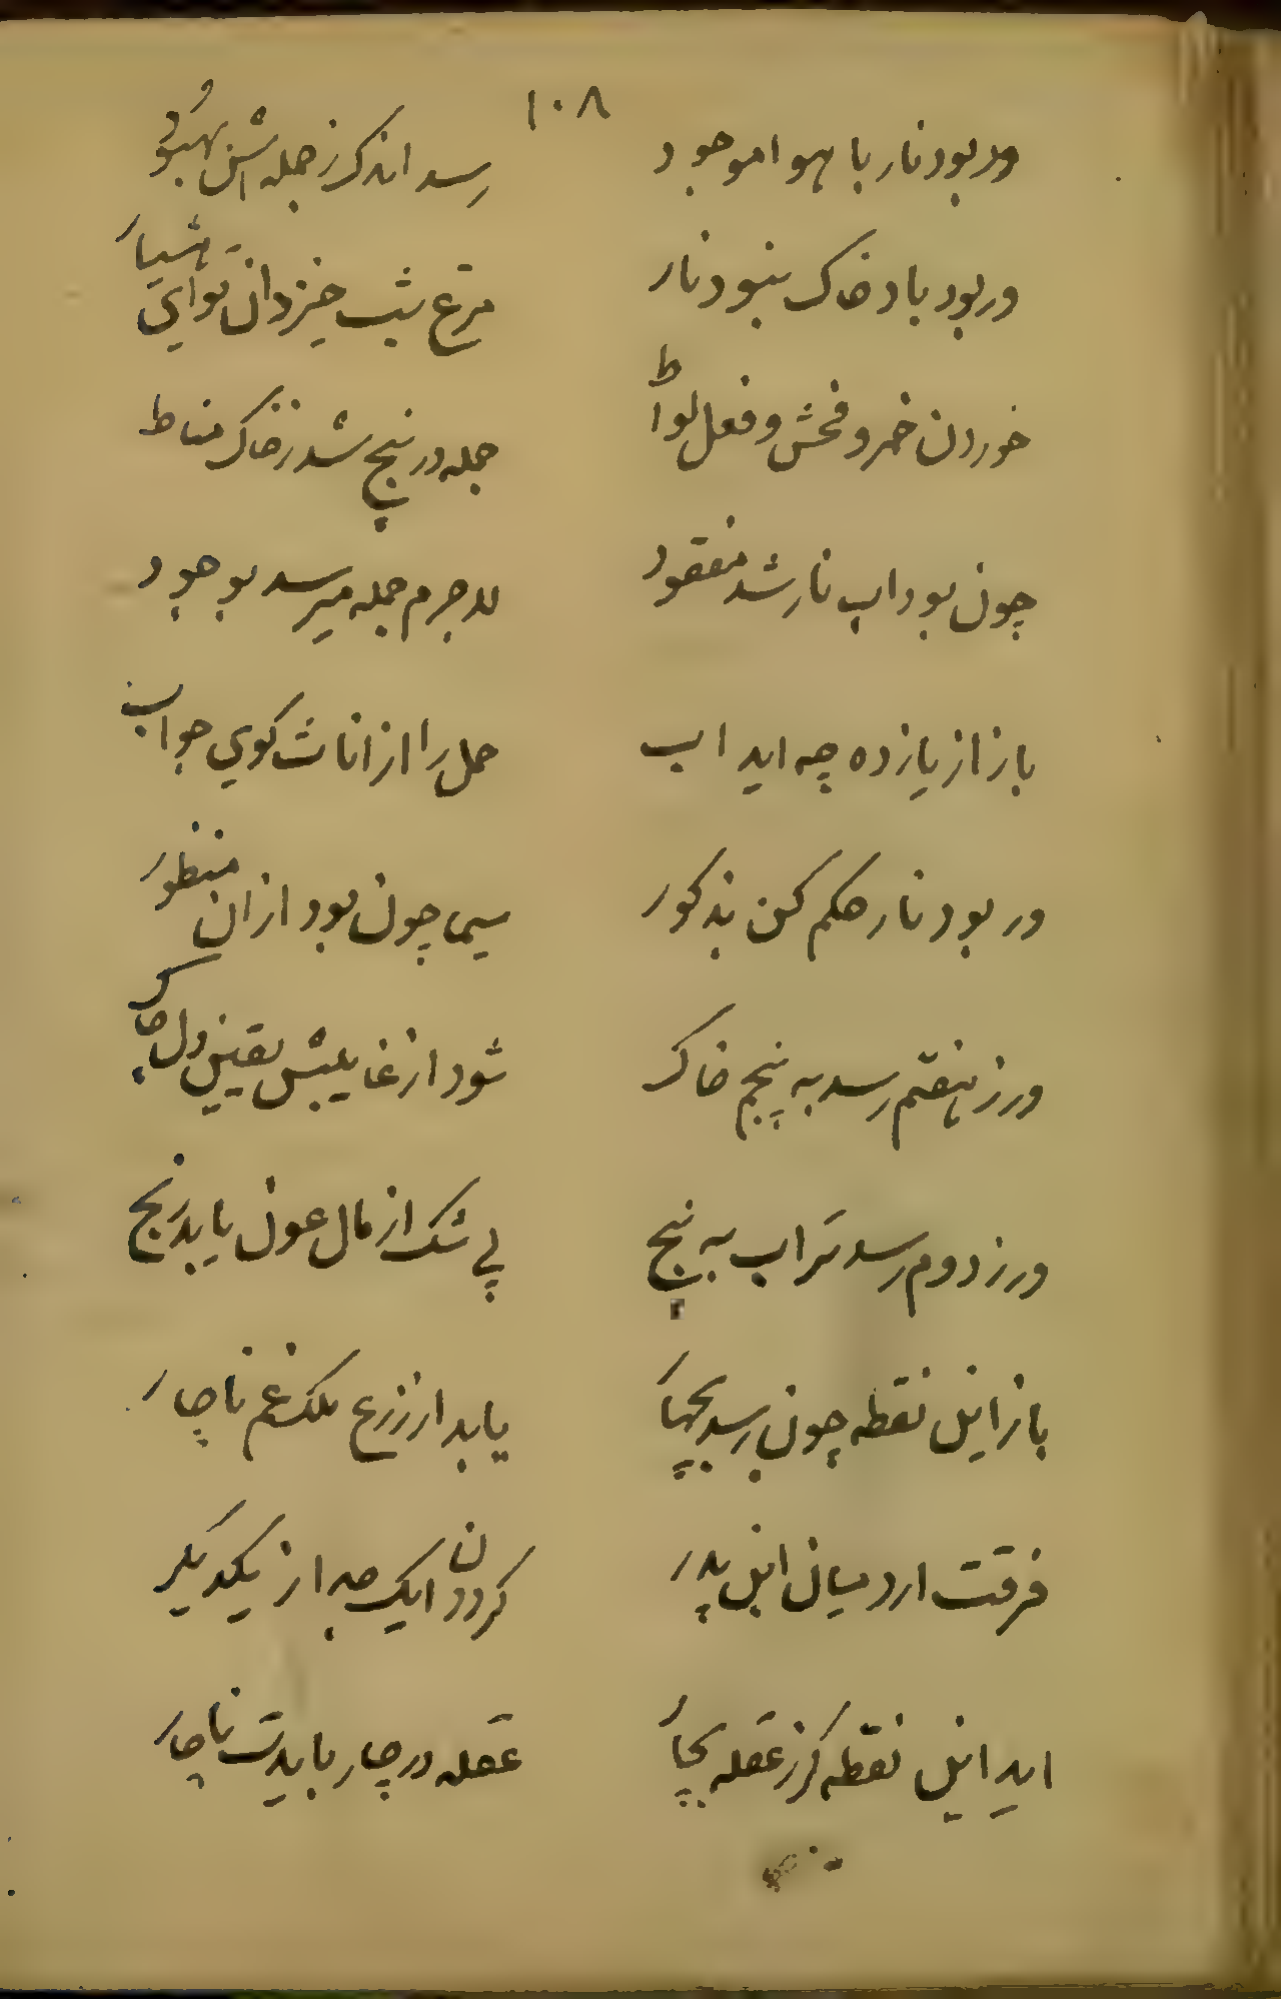 ١٠٨
ور بود نار با هوا موجود رسد اندک ز جمله اش بهبود
ور بود باد خاک نبود نار مرغ شب خیز دان تو ای هشیار
خوردن خمر و فحش و فعل لواط جمله در پنج شد ز خاک مناط
چون بود اب نار شد مفقود لاجرم جمله میرسد بوجود
باز از یازده چه اید اب حمل را از اناث کوی جواب
ور بود نار حکم کن بذکور سیما چون بود ازان منظور
ور ز هفتم رسد به پنجم خاک شود از غایبش یقین دل چاک
ور ز دوم رسد تراب به پنج بی شک از مال عون یابد رنج
باز این نقطه چون رسد بچهار یابد از زرع ملک غم ناچار
فرقت ارد میان این پدر کردن ایک جدا از یکدیکر
اید این نقطه کر ز عقله بچار عقله در چار بایدت ناچار